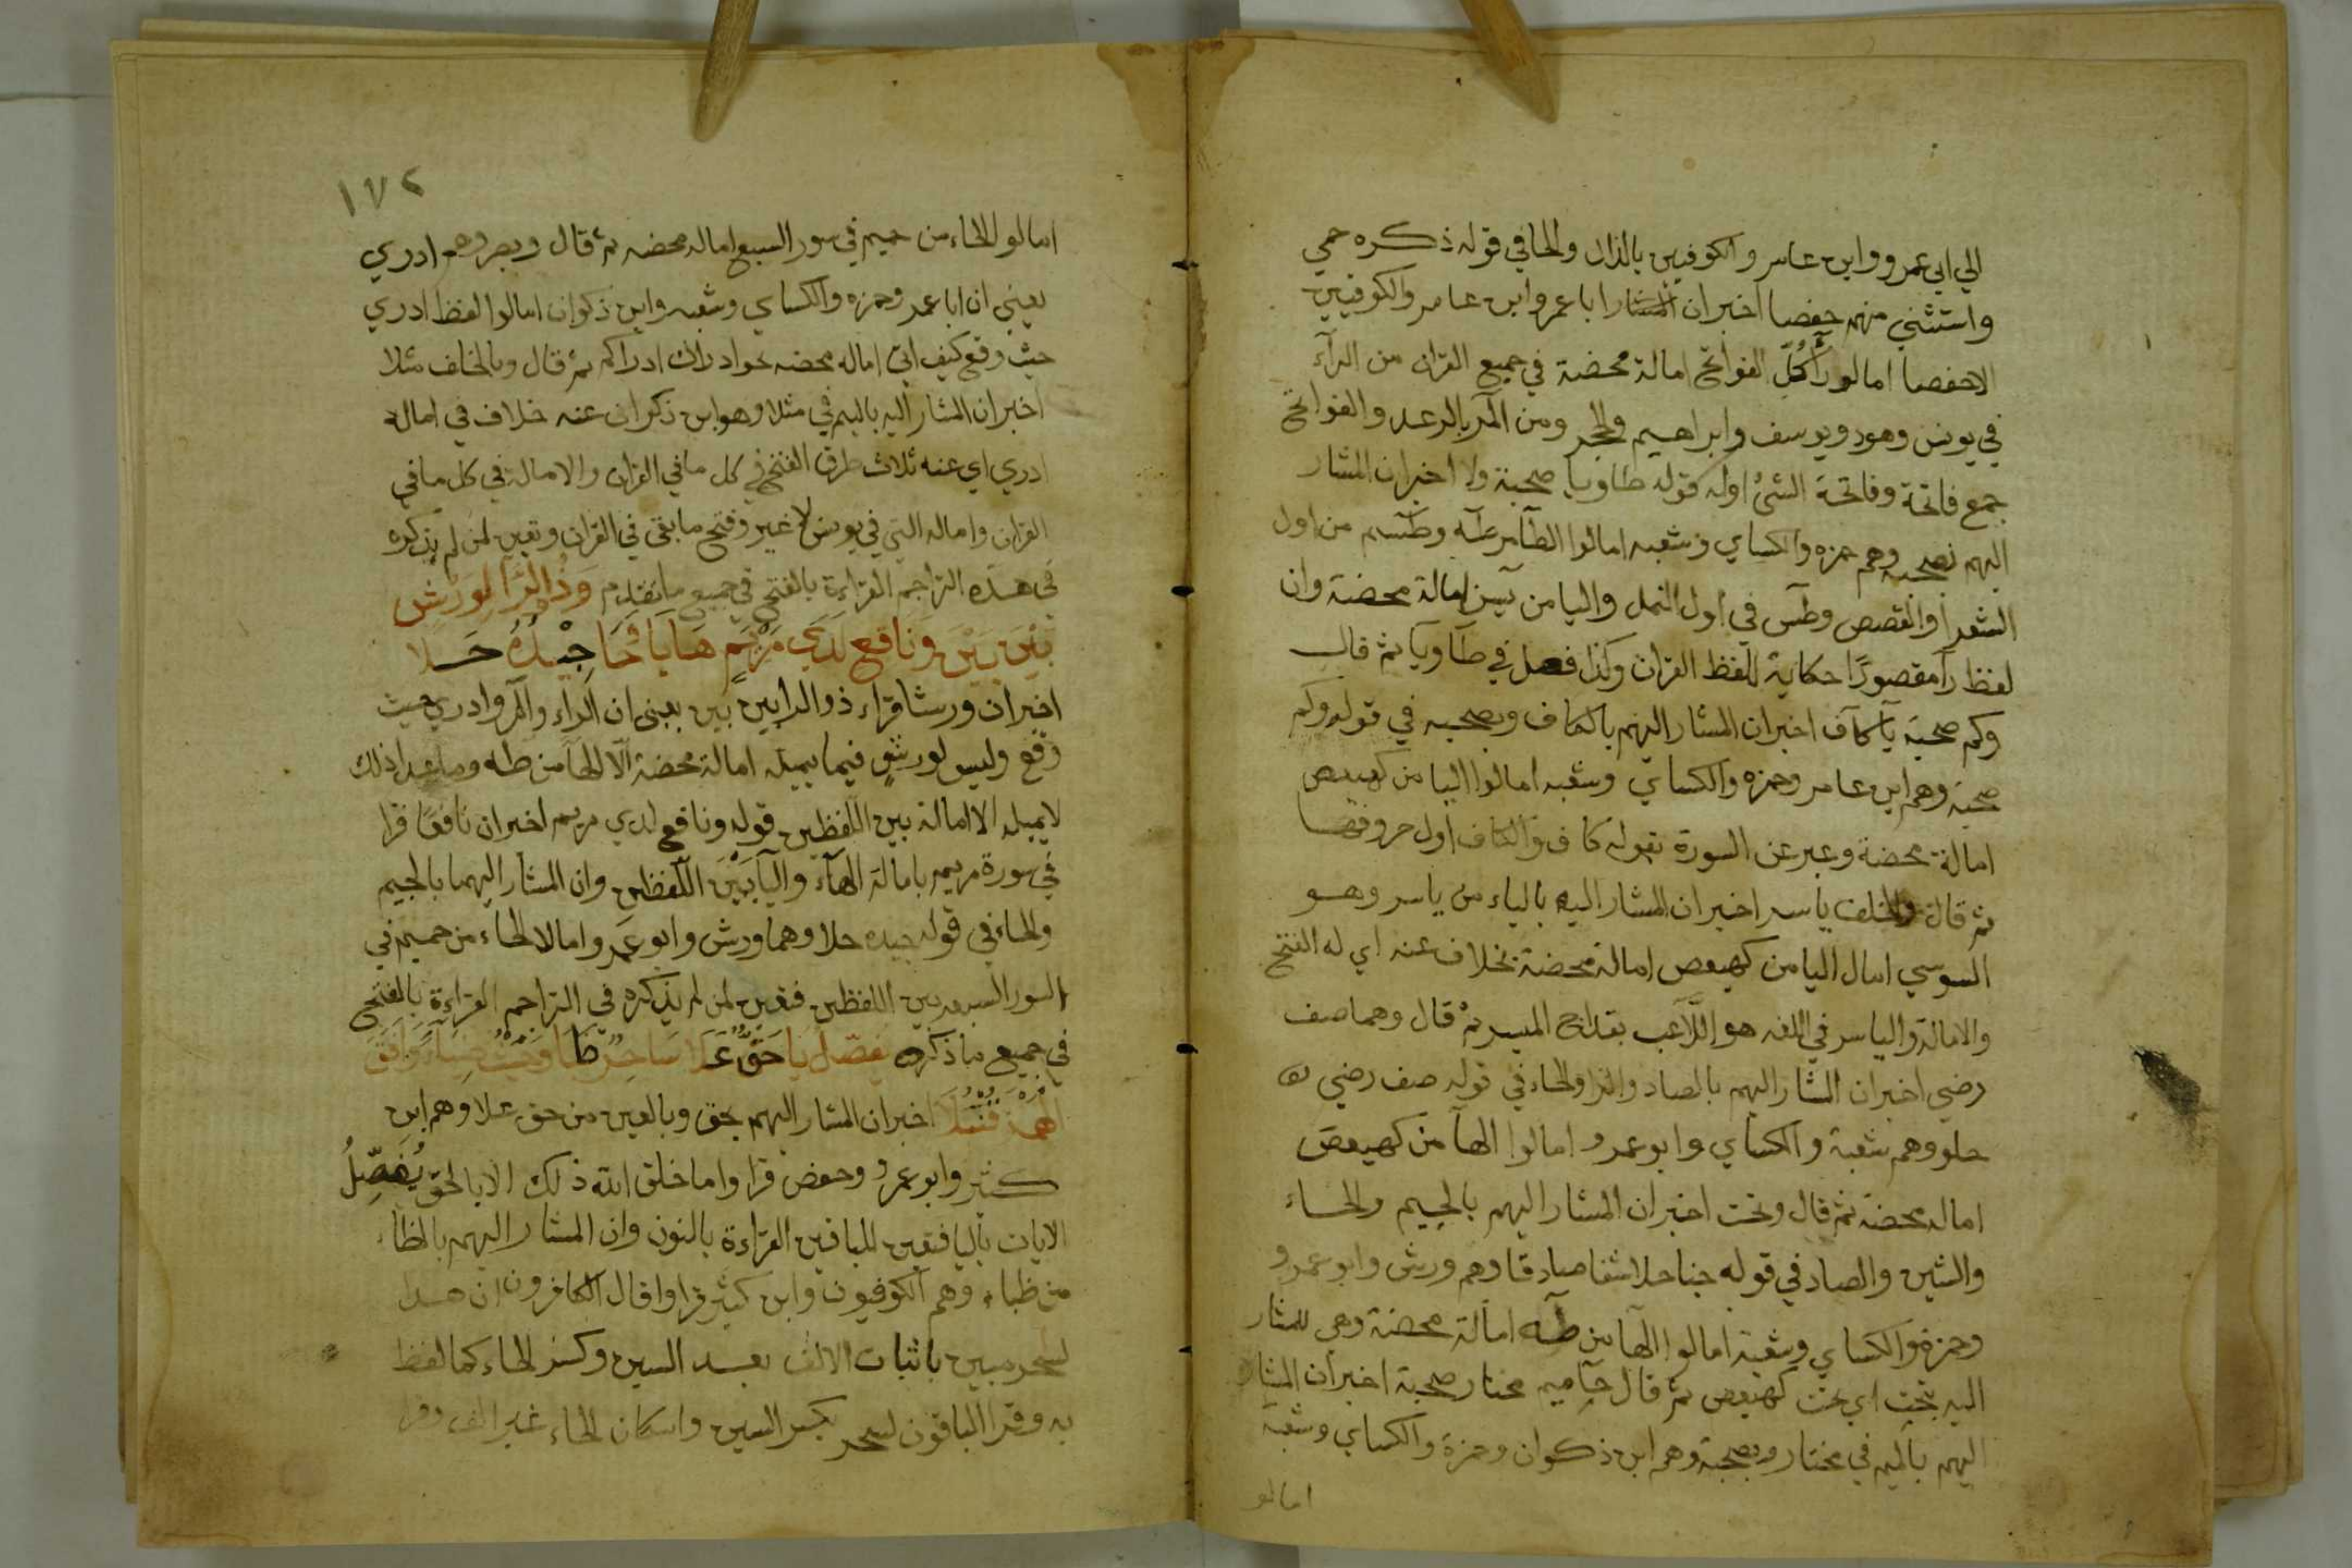 الي ابي عمرو وابن عامر والكوفيين بالذال والحا في قوله ذكره حمي
واستثني منهم حفصا اخبران المشار ابا عمرو ابن عامر والكوفيين
الاحفصا امالو رَآ كُلِّ الفواتح امالة محضة في جميع القران من الرآء
في يونس وهود ويوسف وابراهيم والحجر ومن المر بالرعد والفواتح
جمع فاتحة وفاتحة الشئ اوله كقوله طا ويا صحبة ولا اخبران المشار
اليهم بصحبه وهم حمزه والكساي وشعبه امالوا الطآ من طه وطسم من اول
الشعرا والقصص وطس في اول النمل واليا من يس امالة محضة وان
لفظ رآ مقصورًا حكاية للفظ القران وكذا فعل في طا ويا ثم قال
وكم صحبة يا كاف اخبران المشار اليهم بالكاف وبصحبه في قوله وكم
صحبة وهم ابن عامر وحمزه والكساي وشعبه امالوا اليا من كهيعص
امالة محضة وعبر عن السورة بقوله كاف والكاف اول حروفها
ثم قال والخلف ياسر اخبران المشار اليه بالياء من ياسر وهو
السوسي امال اليا من كهيعص امالة محضة بخلاف عنه اي له الفتح
والامالة والياسر في اللغه هو اللّاعب بقداح الميسر ثم قال وهما صف
رضي اخبران المشار اليهم بالصاد والرا والحاء في قوله صف رضي
حلو وهم شعبة والكساي وابوعمرو امالوا الهآ من كهيعص
اماله محضة ثم قال وتحت اخبران المشار اليهم بالجيم والحاء
والشين والصاد في قوله جنا حلا شفا صادقا وهم ورش وابوعمرو
وحمزة والكساي وشعبة امالوا الهآ من طه امالة محضة وهي المشار
اليه بتحت اي تحت كهيعص ثم قال حاميم مختار صحبة اخبران المشار
اليهم بالميم في مختار وبصحبة وهم ابن ذكوان وحمزة والكساي وشعبة
امالو
١٧٢
امالو للحاء من حميم في سور السبع اماله محضه ثم قال وبصروهم ادري
يعني ان ابا عمر وحمزه والكساي وشعبه وابن ذكوان امالوا لفظ ادري
حيث وقع كيف اتي اماله محضه نحو ادراك ادراكم ثم قال وبالخلف مثلا
اخبران المشار اليه بالميم في مثلا وهو ابن ذكران عنه خلاف في امالة
ادري اي عنه ثلاث طرق الفتح في كل ما في القران والامالة في كل ما في
القران واماله التي في يونس لا غير وفتح ما بقي في القران وتعين لمن لم يذكره
في هذه التراجم القراءة بالفتح في جميع ما تقدم وَذُ الرَّا لِوَرْشٍ
بَيْنَ بَيْنَ وَنَافِع لَدَي مَرْيَمٍ هَا يَا وَحَا جِيْدُهُ حَلَا
اخبران ورشا قراء ذوالرا بين بين يعني ان الراء والمر وادري حيث
وقع وليس لورش فيما يميله امالة محضة الّا الهآ من طه وما عدا ذلك
لا يميله الا امالة بين اللفظين قوله ونافع لدي مريم اخبران نافعًا قرا
في سورة مريم بامالة الهآء واليآ بَيْنَ اللّفظين وان المشار اليهما بالجيم
والحاء في قوله جيده حلا وهما ورش وابو عمرو امالا الحاء من حميم في
السور السبعه بين اللفظين فتعين لمن لم يذكره في التراجم القراءة بالفتح
في جميع ما ذكره نفصل يا حَقٌّ عَلا سَاحِرٌ ظَبا وَحَيْثُ ضِيآءً وَافَقَ
الهَمْزُ قُنْبُلَا اخبران المشار اليهم بحق وبالعين من حق علا وهم ابن
كثير وابوعمرو وحفص قرا واما خلق الله ذلك الا بالحق يُفَصِّلُ
الايات باليا فتعين للباقين القراءة بالنون وان المشار اليهم بالظاء
من ظباء وهم الكوفيون وابن كثير قراوا قال الكافرون ان هذا
لسحر مبين باثبات الالف بعد السين وكسر الحاء كما لفظ
به وقرا الباقون لسحر بكسر السين واسكان الحاء غير الف وقرا